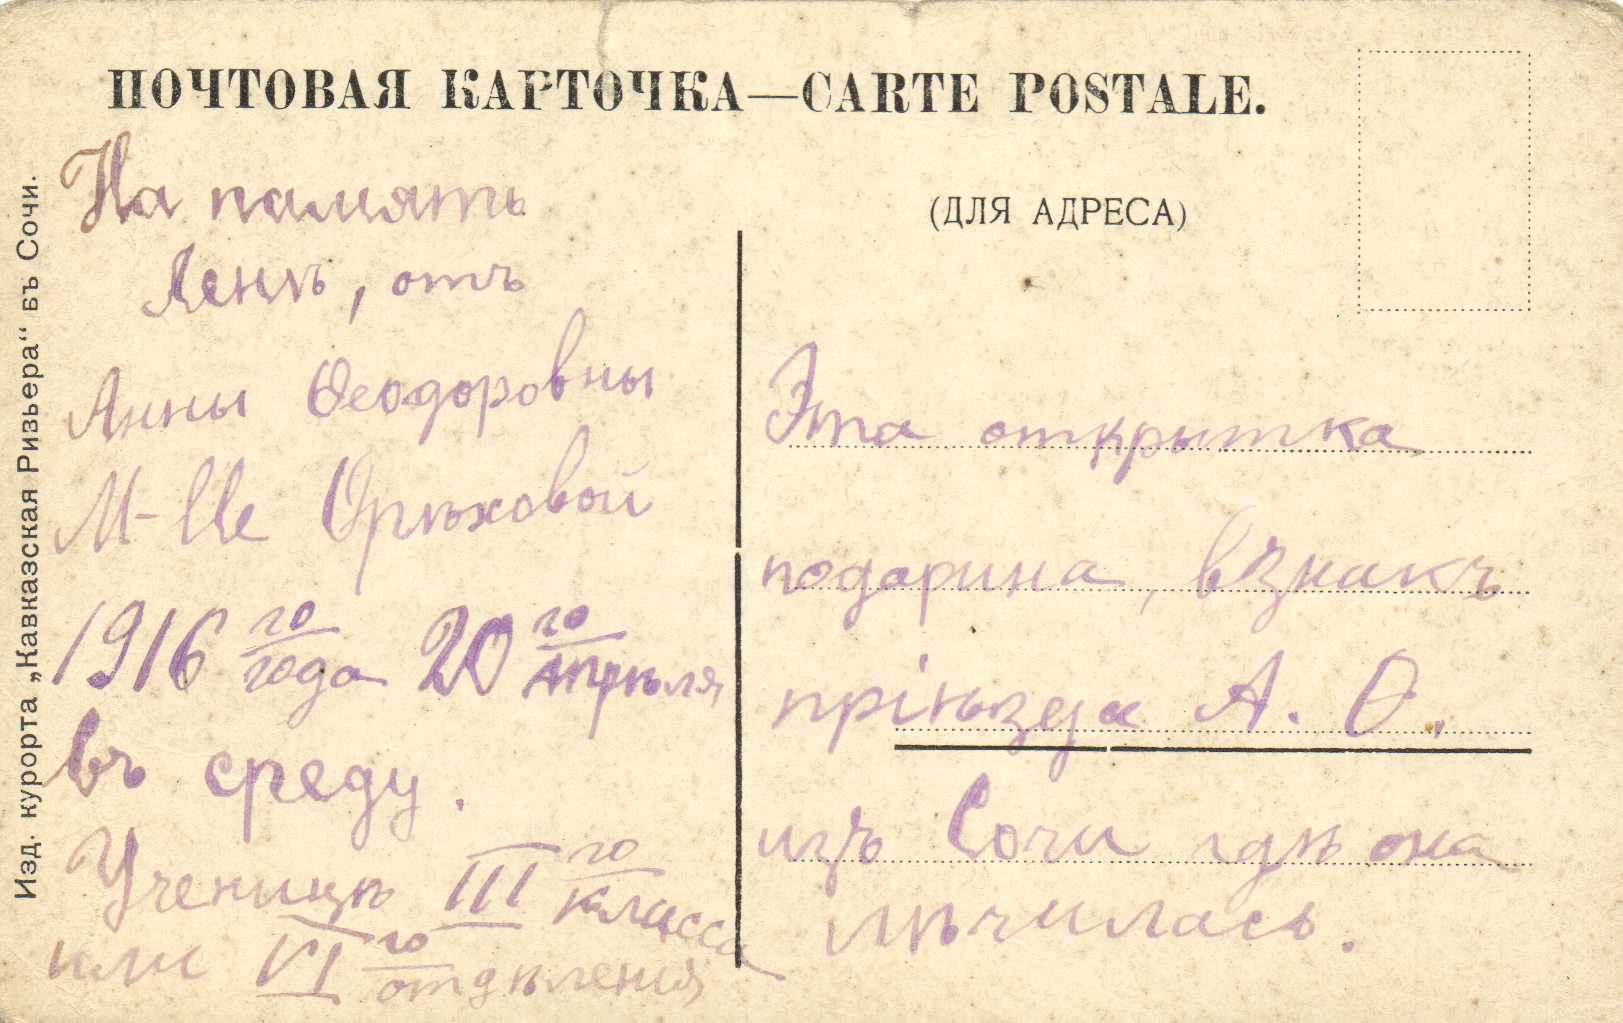 ПОЧТОВАЯ КАРТОЧКА—CARTE POSTALE.
(ДЛЯ АДРЕСА)
Изд. курорта „Кавказская Ривьера“ въ Сочи.
На память
Ленѣ, отъ
Анны Ѳеодоровны
М-lle Орѣховой
1916 го года 20 го Апрѣля
въ среду.
Ученицѣ III го класса
или VI го отдѣления
Эта открытка
подарина, взнакъ
пріѣзда А. О.
изъ Сочи гдѣ она
лѣчилась.